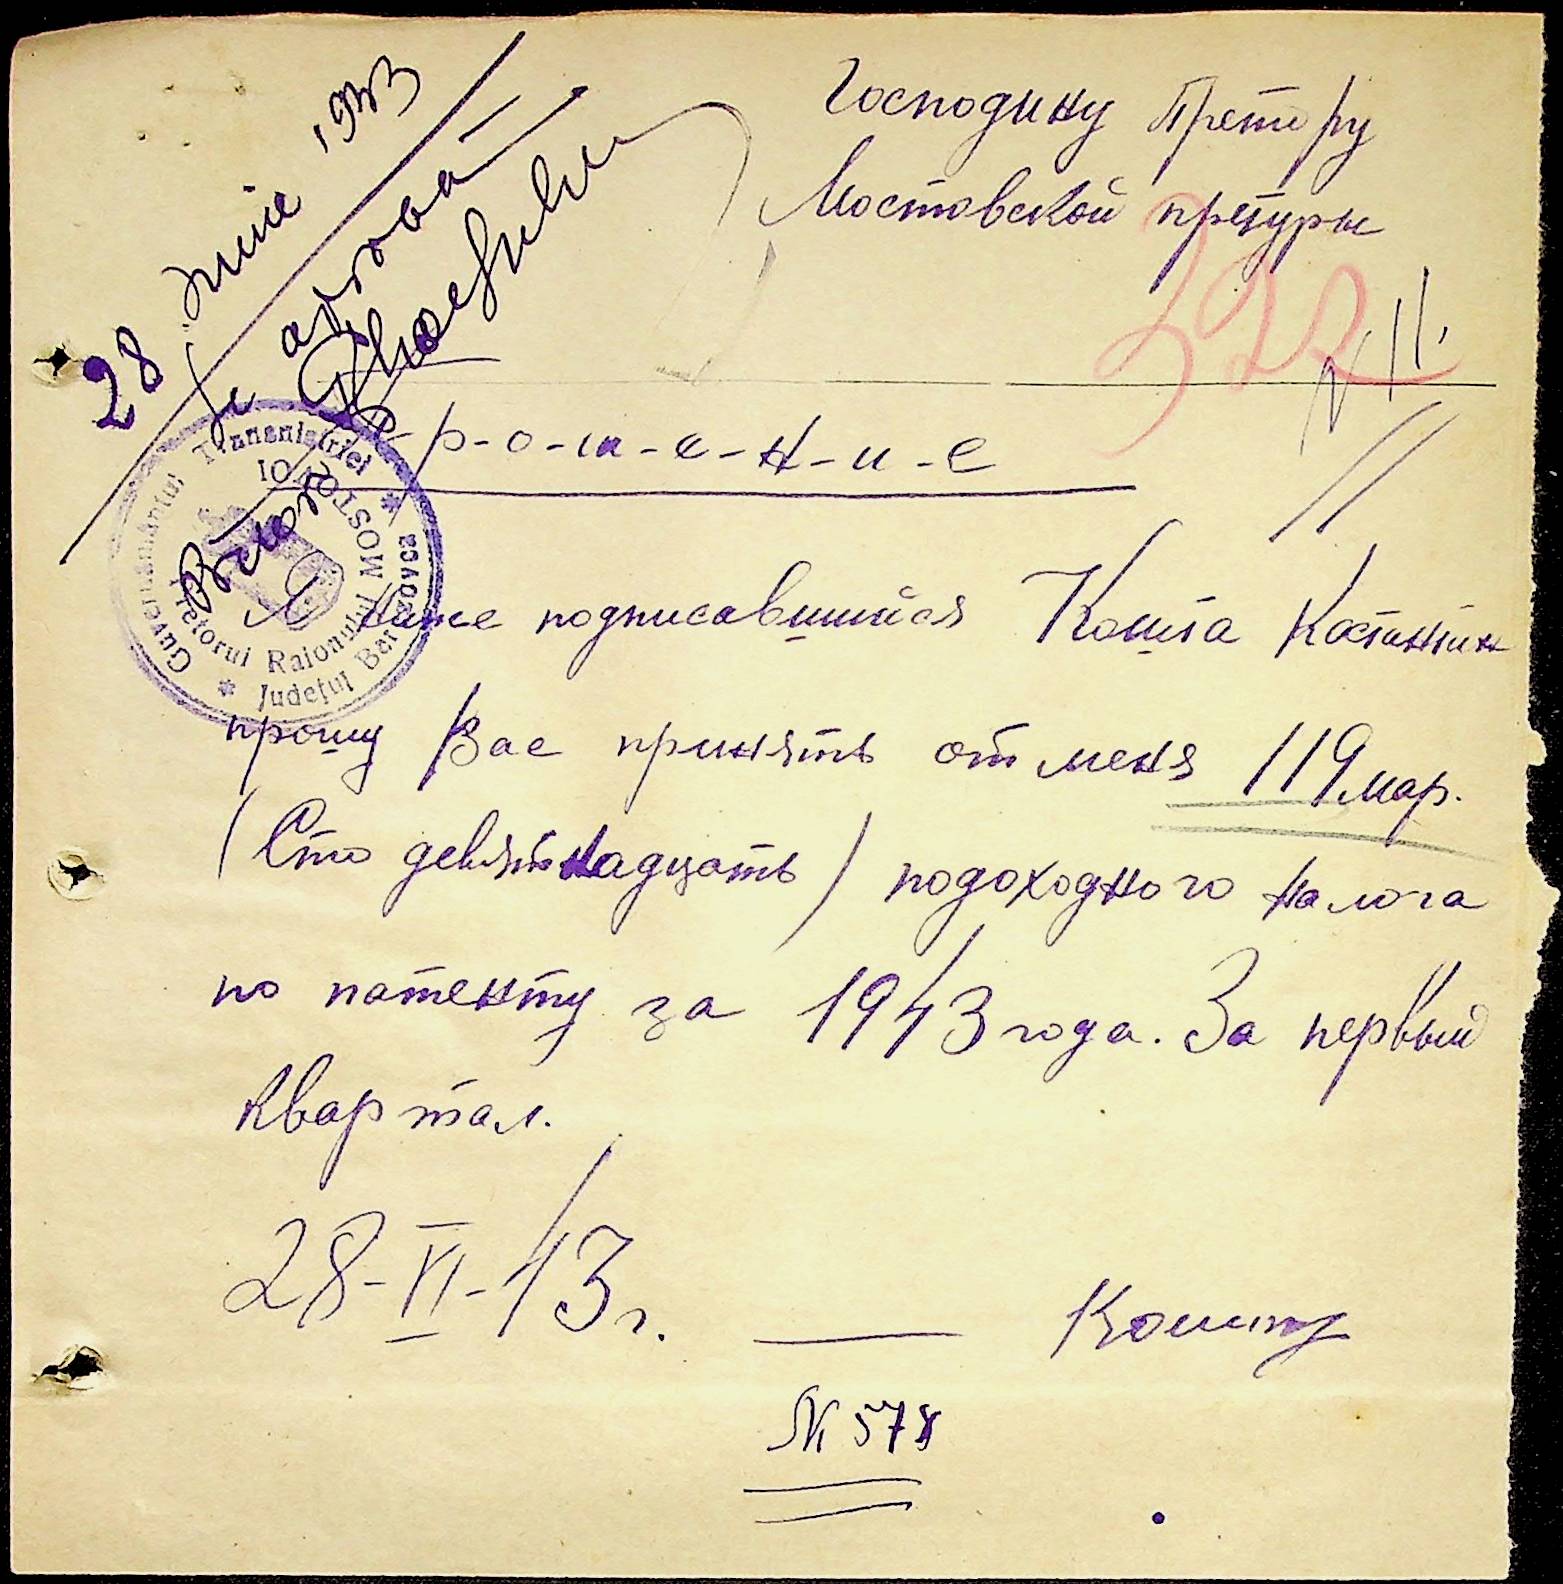 28 Iunie 1943
Se aprobă
Господину Претору
Мостовской претуры
322
П-р-о-ш-е-н-и-е
Guvernământul Transnistriei
Pretorul Raionului MOSTOVOI
Județul Berezovca
Я ниже подписавшийся Кошта Костантин
прошу Вас принять от меня 119 мар.
(Сто девятнадцать) подоходного налога
по патенту за 1943 года. За первый
квартал.
28-VI-43 г.
№ 578